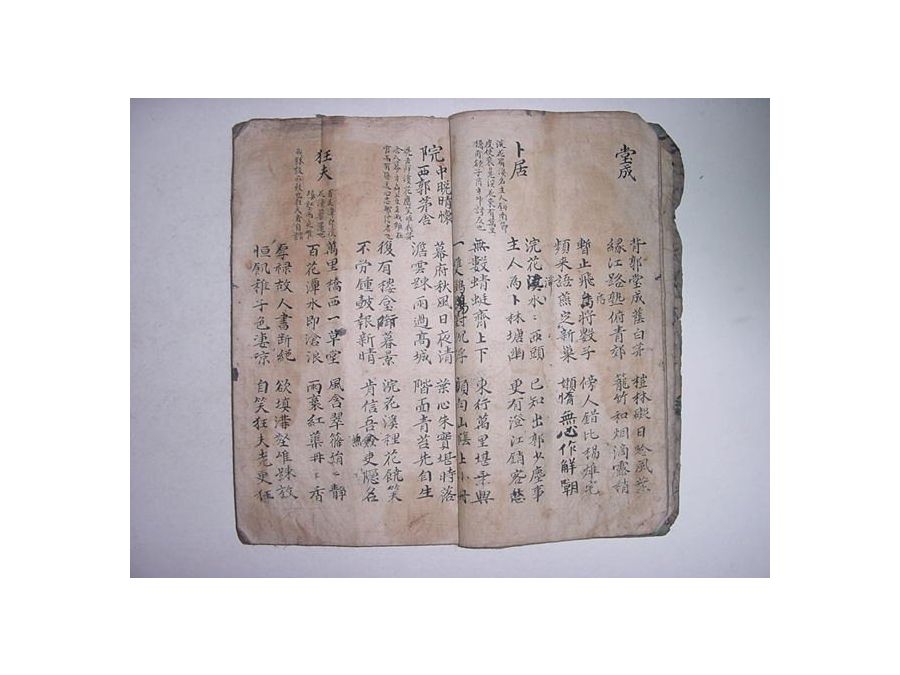 堂成
背郭堂成蔭白茅 榿林礙日吟風葉
緣江路熟俯青郊 籠竹和烟滴露梢
暫止飛烏將數子 傍人錯比揚雄宅
頻來語燕定新巢 嬾惰無心作解嘲
卜居
浣花溪水〻西頭 已知出郭少塵事
主人為卜林塘幽 更有澄江銷客愁
無數蜻蜓齊上下 東行萬里堪乘興
一雙鸂鶒對沉浮 須向山陰上小舟
院中晚晴懷
西郭茅舍
幕府秋風日夜清 葉心朱實堪時落
澹雲踈雨過高城 階面青苔先自生
復有樓臺銜暮景 浣花溪裡花饒笑
不勞鍾鼓報新晴 肯信吾兼吏隱名
狂夫
萬里橋西一草堂 風含翠篠娟〻靜
百花潭水即滄浪 雨裛紅蕖冉〻香
厚祿故人書斷絕 欲填溝壑唯踈放
恒飢稚子色凄凉 自笑狂夫老更狂